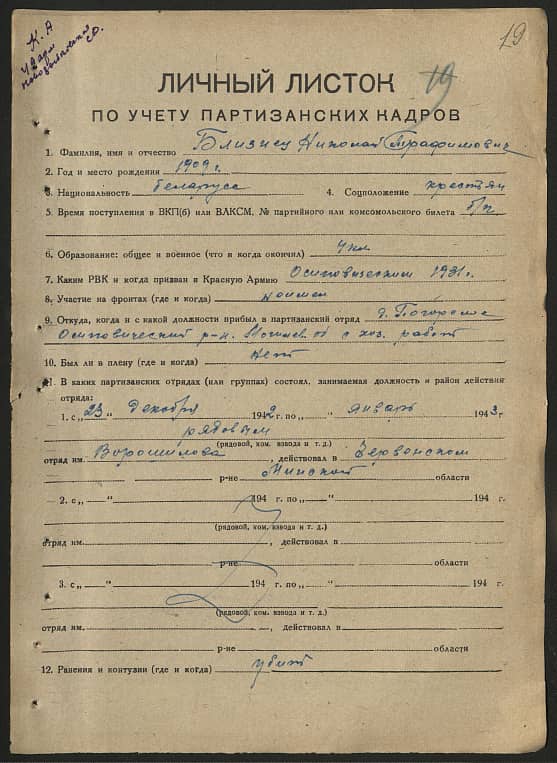 К. А
19
19
ЛИЧНЫЙ ЛИСТОК
ПО УЧЕТУ ПАРТИЗАНСКИХ КАДРОВ
1. Фамилия, имя и отчество Близнец Николай Трафимович
2. Год и место рождения 1909 г.
3. Национальность беларусс 4. Соцположение крестьян
5. Время поступления в ВКП(б) или ВЛКСМ, № партийного или комсомольского билета б/п
6. Образование: общее и военное (что и когда окончил) 4 кл
7. Каким РВК и когда призван в Красную Армию Осиповическим 1931 г.
8. Участие на фронтах (где и когда)
9. Откуда, когда и с какой должности прибыл в партизанский отряд д. Погорелое
Осиповический р-н. Могилев. об с хоз. работ
10. Был ли в плену (где и когда) нет
11. В каких партизанских отрядах (или группах) состоял, занимаемая должность и район действия
отряда:
1. с „23“ декабря 1942 г. по „ “ январь 1943 г.
рядовым
(рядовой, ком. взвода и т. д.)
отряд им. Ворошилова, действовал в Червенском
р-не Минской области
2. с „ “ 194 г. по „ “ 194 г.
(рядовой, ком. взвода и т. д.)
отряд им. , действовал в
р-не области
3. с „ “ 194 г. по „ “ 194 г.
(рядовой, ком. взвода и т. д.)
отряд им. , действовал в
р-не области
12. Ранения и контузии (где и когда) убит